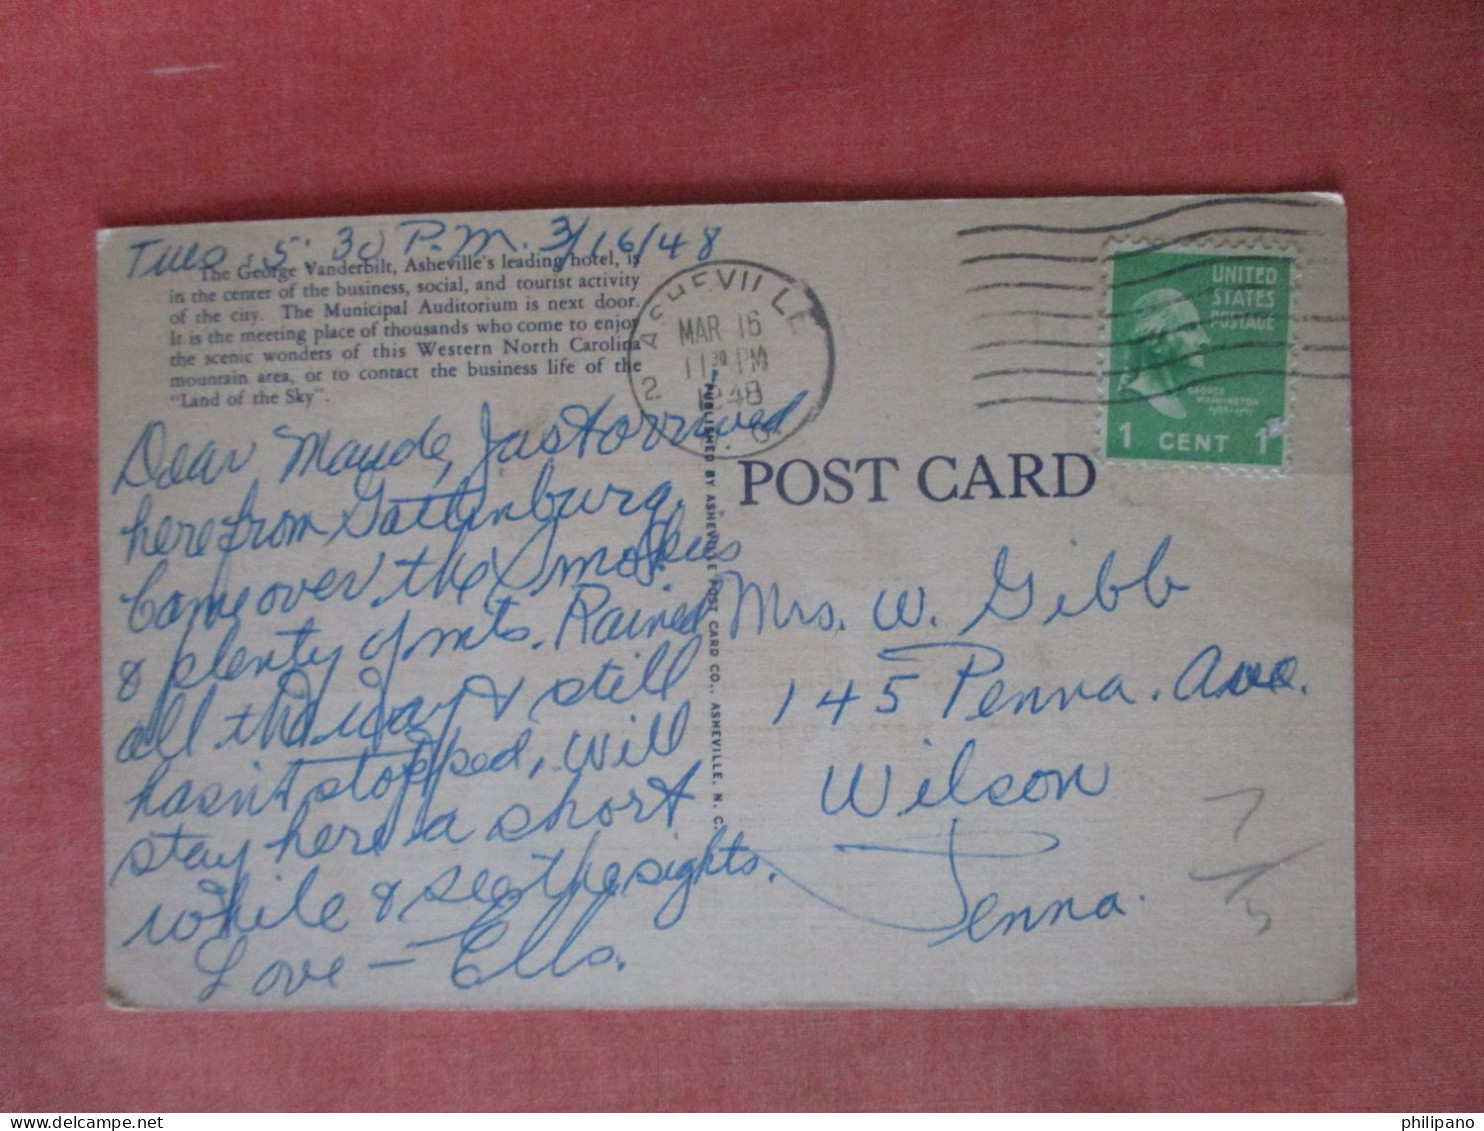 Tues. 5:30 P.M. 3/16/48
The George Vanderbilt, Asheville's leading hotel, is
in the center of the business, social, and tourist activity
of the city. The Municipal Auditorium is next door.
It is the meeting place of thousands who come to enjoy
the scenic wonders of this Western North Carolina
mountain area, or to contact the business life of the
"Land of the Sky".
Dear Maude, Just arrived
here from Gattinburg.
Came over the Smokies
& plenty of mts. Rained
all the way & still
hasn't stopped, will
stay here a short
while & see the sights.
Love - Ella.
ASHEVILLE
MAR 16
11 30 PM
1948
2
PUBLISHED BY ASHEVILLE POST CARD CO., ASHEVILLE, N. C.
UNITED
STATES
POSTAGE
GEORGE
WASHINGTON
1 CENT 1
POST CARD
Mrs. W. Gibb
145 Penna. Ave.
Wilson
Penna.
7
philipano